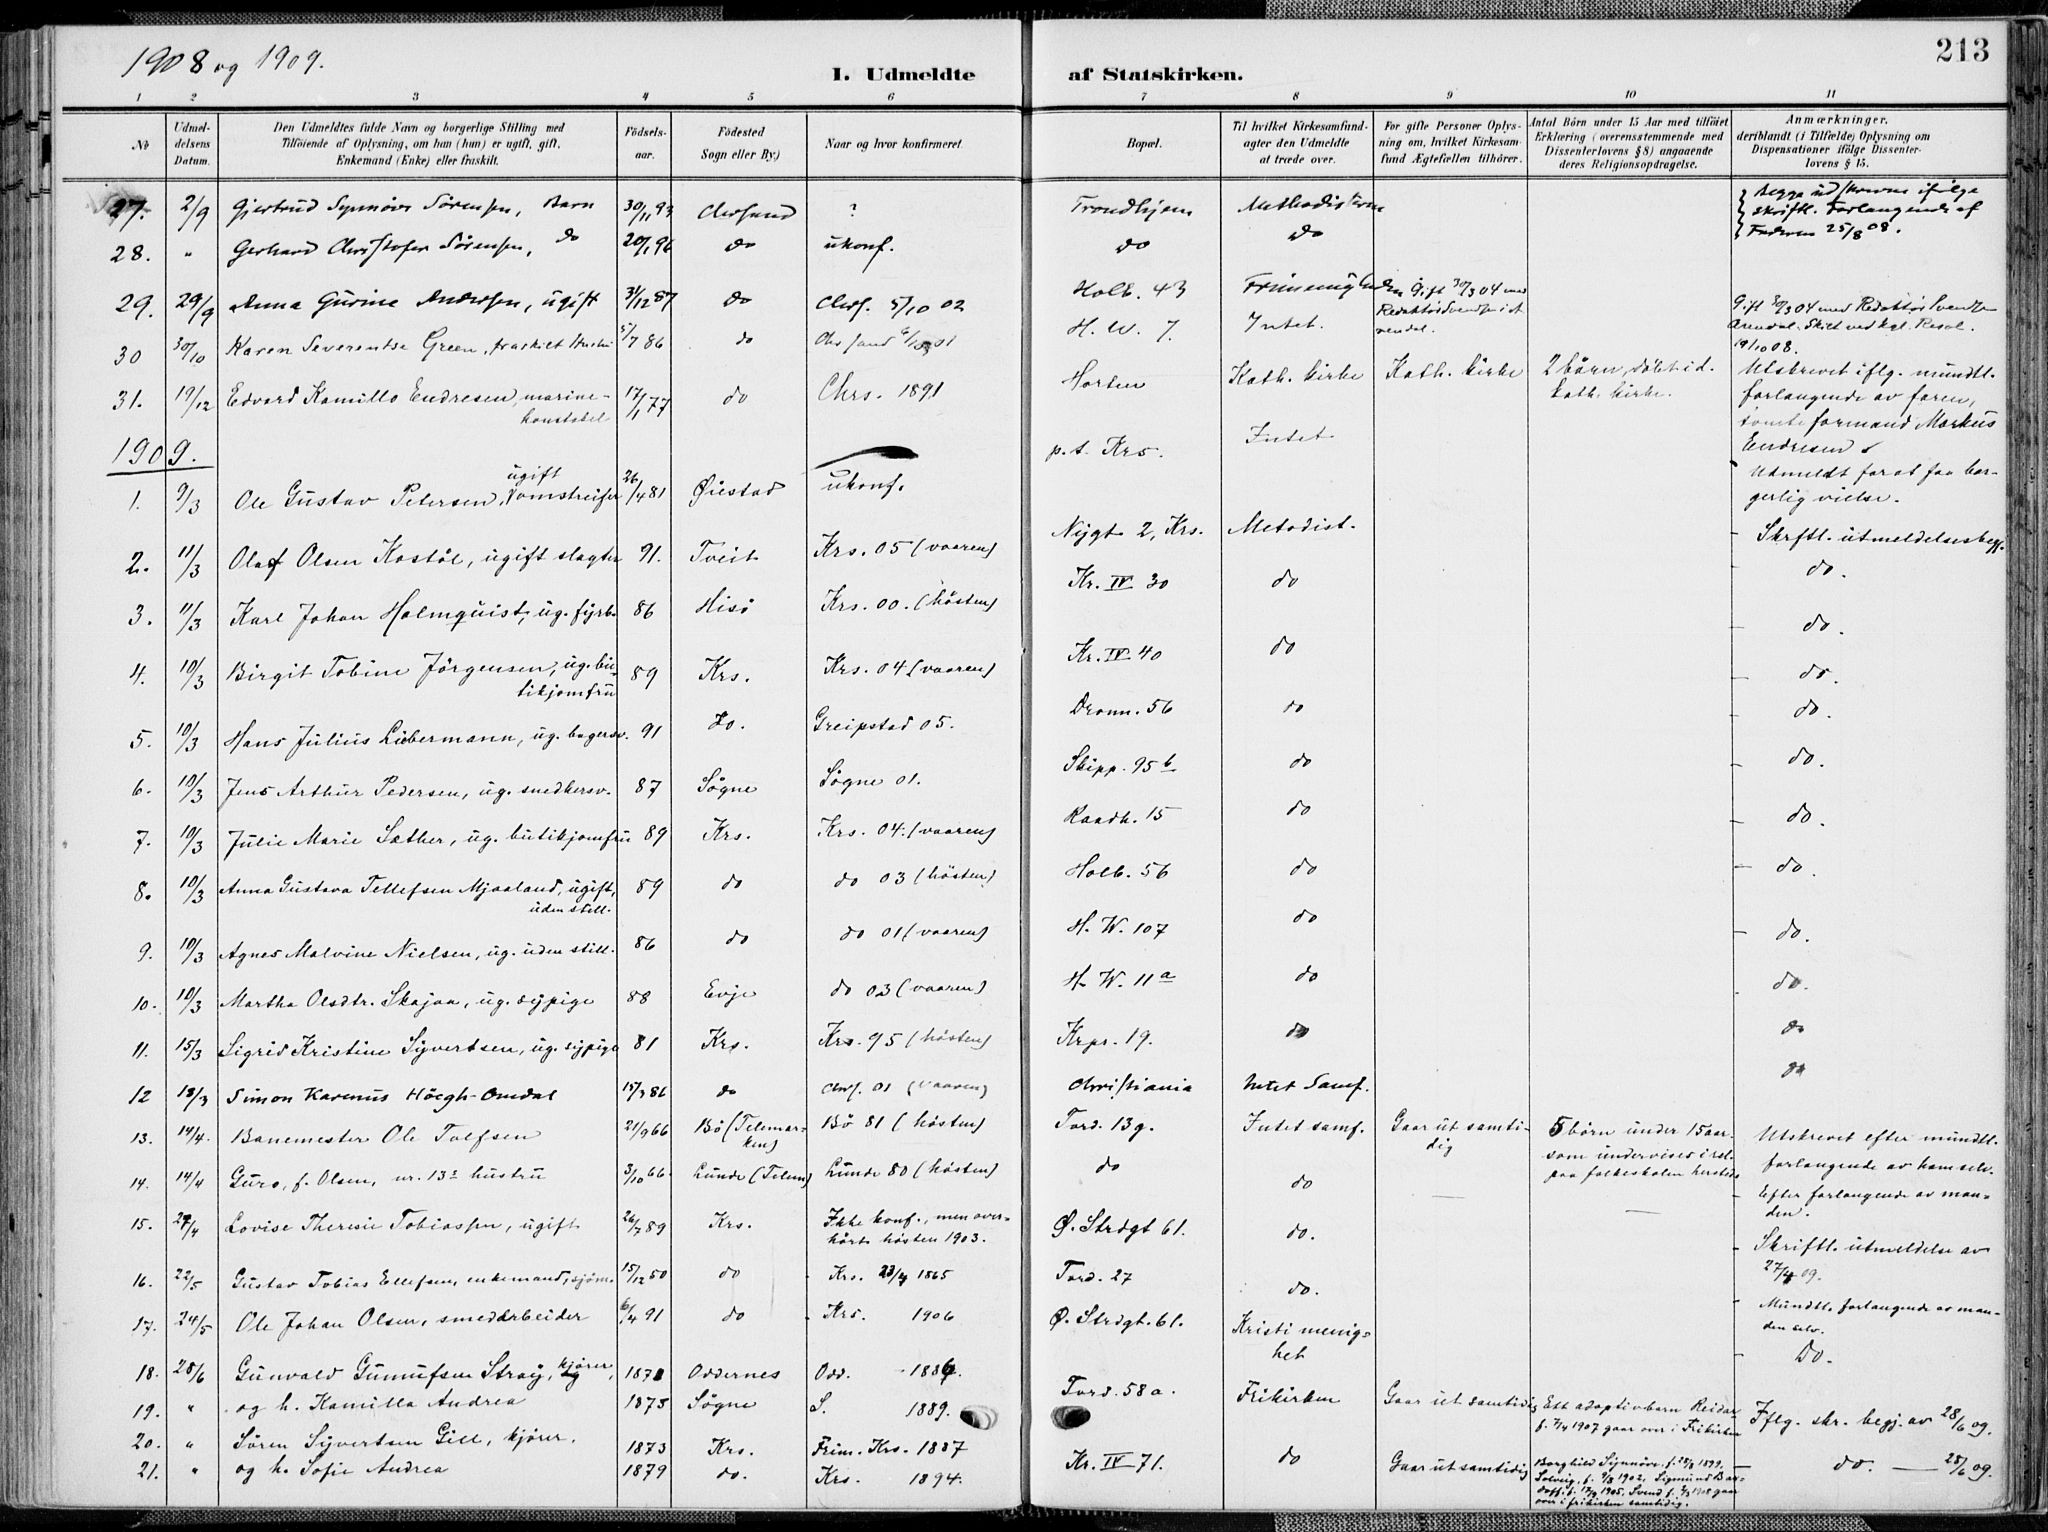 1908 og 1909.
213
I. Udmeldte af Statskirken.
1 2 3 4 5 6 7 8 9 10 11
No
Udmel-
delsens
Datum.
Den Udmeldtes fulde Navn og borgerlige Stilling med
Tilföiende af Oplysning, om han (hun) er ugift, gift,
Enkemand (Enke) eller fraskilt.
Födsels-
aar.
Födested
Sogn eller By.)
Naar og hvor konfirmeret.
Bopæl.
Til hvilket Kirkesamfund-
agter den Udmeldte
at træde over.
For gifte Personer Oplys-
ning om, hvilket Kirkesam-
fund Ægtefællen tilhörer.
Antal Börn under 15 Aar med tilföiet
Erklæring (overensstemmende med
Dissenterlovens § 8) angaaende
deres Religionsopdragelse.
Anmærkninger.
deriblandt (i Tilfælde) Oplysning om
Dispensationer ifölge Dissenter-
lovens § 15.
27. 2/9 Gjertrud Synnöve Sörensen, Barn 30/11 93 Chrsand ? Trondhjem Methodisterne
Begge udskrevne ifölge
skriftl. Forlangende af
Faderen 25/8 08.
28. " Gerhard Christofer Sörensen, do 20/1 96 do ukonf. do do
29. 29/9 Anna Gurine Andersen, ugift 31/12 87 do Chrs. 5/10 02 Holb. 43
30 30/10 Karen Severentse Green, fraskilt Hustru 5/7 86 do H. W. 7. Intet.
Gift 30/3 04 med
Redaktör Svendsen i A
rendal.
Gift 30/3 04 med Redaktör Svendsen
Arendal. Skilt ved kgl. Resol.
19/10 08.
31. 19/12 Edvard Kamillo Endresen, marine-
konstabel 17/1 77 do Chrs. 1891 Horten Kath. kirke Kath. kirke 2 börn, döbt i d.
kath. kirke.
Utskrevet iflg. mundtl.
forlangende av faren,
tomteformand Markus
Endresen.
1909.
1. 9/3 Ole Gustav Petersen, ugift Vomstreifer 26/4 81 Öiestad ukonf. p. t. Krs. Intet
Udmeldt for at faa bor-
gerlig vielse.
2. 11/3 Olaf Olsen Kostöl, ugift slagter 91. Tveit Krs. 05 (vaaren) Nygt 2, Krs. Metodist. - Skrftl. utmeldelsesbegj.
3. 11/3 Karl Johan Holmquist, ug. fyrb. 86 Hisö Krs. 00. (hösten) Kr. IV 30 do - do.
4. 10/3 Birgit Tobine Jörgensen, ug. bu-
tikjomfru 89 Krs. Krs. 04 (vaaren) Kr. IV 40 do - do.
5. 10/3 Hans Julius Liebermann, ug. bagersv. 91 Do. Greipstad 05. Dronn. 56 do - do.
6. 10/3 Jens Arthur Pedersen, ug. snedkersv. 87 Sögne Sögne 01. Skipp. 95 b do - do.
7. 10/3 Julie Marie Sæther, ug. butikjomfru 89 Krs. Krs. 04. (vaaren) Raadh. 15 do - do.
8. 10/3 Anna Gustava Tellefsen Mjaaland, ugift,
uden still. 89 do do 03 (hösten) Holb. 56 do - do.
9. 10/3 Agnes Malvine Nielsen, ug. uden still. 86 do do 01 (vaaren) H. W. 107 do - do.
10. 10/3 Martha Olsdtr. Skajaa, ug. sypige 88 Evje do 03 (vaaren) H. W. 11 a do - do.
11. 15/3 Sigrid Kristine Syvertsen, ug. sypige 81 Krs. Krs. 95 (hösten) Krpr. 19. do do
12 18/3 Simon Karenus Höegh-Omdal 15/3 86 do Chrs. 01 (vaaren) Christiania Intet Samf. do
13. 14/4. Banemester Ole Tolfsen 21/9 66 Bö (Telemar-
ken) Bö 81 (hösten) Tord. 13 g. Intet samf. Gaar ut samti-
dig
5 börn under 15 aar
som undervises i rel.
paa folkeskolen hersteds
Utskrevet efter mundtl.
forlangende av ham selv.
14. 14/4 Guro, f. Olsen, nr. 13s hustru 3/10 66. Lunde (Telem) Lunde 80 (hösten) do do —
- Efter forlangende av man-
den.
15. 27/4 Lovise Theresie Tobiassen, ugift 26/7 89 Krs. Ikke konf., men over-
hört hösten 1903. Ö. Strdgt 61. do. —
- Skriftl. utmeldelse av
27/4 09.
16. 22/5 Gustav Tobias Ellefsen, enkemand, sjöm. 15/12 50 do Krs. 23/4 1865 Tord. 27 do.
- Mundtl. forlangende av man-
den selv.
17. 24/5 Ole Johan Olsen, smedarbeider 6/4 91 do Krs. 1906 Ö. Strdgt. 61. Kristi menig-
het Do.
18. 28/6 Gunvald Gunnufsen Straj, kjörer, 1871 Oddernes Odd. 1886.
19. " og h. Kamilla Andrea 1875 Sögne S. 1889. Tord. 58 a. Frikirken Gaar ut samtidig
Ett adoptivbarn Reidar
f. 7/4 1907 gaar over i Frikirken
Iflg. skr. begj. av 28/6 09.
20. " Sören Syvertsen Gill, kjörer. 1873 Krs. Frim. Krs. 1887
21. " og h. Sofie Andrea 1879 do. Krs. 1894. Kr. IV 71. do Gaar ut samtidig
Borghild Synnöve f. 29/8 1899,
Solveig, f. 9/8 1902, Sigmund Bar-
doff f. 17/9 1905, Svend f. 3/3 1908 gaar
over i frikirken samtidig.
— do. — 28/6 09.